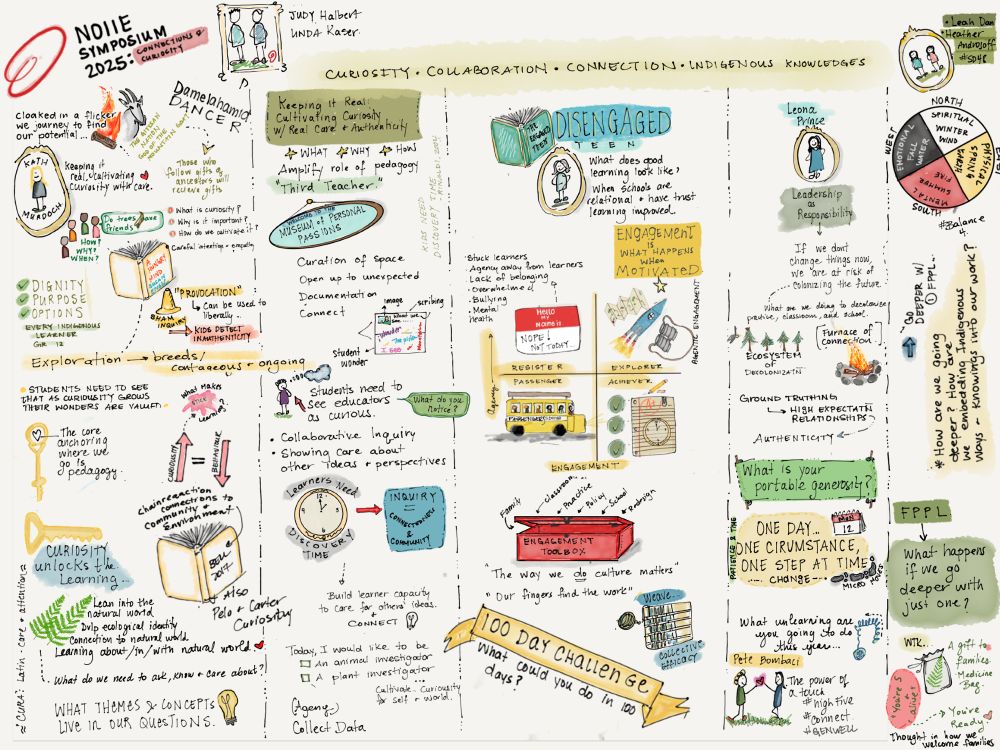 NOIIE
SYMPOSIUM
2025:
CONNECTIONS &
CURIOSITY
JUDY Halbert
LINDA Kaser
CURIOSITY · COLLABORATION · CONNECTION · INDIGENOUS KNOWLEDGES
Leah Dan
Heather
Androsoff
#SD48
Cloaked in a flicker
we journey to find
our potential...
Damelahamid
DANCER
GOD OF THE
MOUNTAIN GOAT
Those who
follow gifts of
ancestors will
recieve gifts
KATH
MURDOCH
keeping it
real, cultivating
curiosity with care.
Do trees have
friends?
HOW?
WHY?
WHEN?
What is curiosity?
Why is it important?
How do we cultivate it?
Careful intention + empathy
DIGNITY
PURPOSE
OPTIONS
EVERY INDIGENOUS
LEARNER
GR 12
"PROVOCATION"
Can be used to
liberally...
SHAM
INQUIRY
KIDS DETECT
INAUTHENTICITY
Exploration → breeds/
contageous + ongoing
STUDENTS NEED TO SEE
THAT AS CURIOSITY GROWS
THEIR WONDERS ARE VALUED.
What makes
STICK
learning?
The core
anchoring
where we
go is
pedagogy.
CURIOSITY
=
BEHAVIOUR
Chainreaction
connections to
community +
Environment
CURIOSITY
unlocks the
Learning...
2017
Also
Pelo + Carter
Curiosity
Lean into the
natural world
Dvlp ecological identity
Connection to natural world
Learning about/in/with natural world.
What do we need to ask, know + care about?
"CURA: Latin - care + attention"
WHAT THEMES & CONCEPTS
LIVE IN OUR QUESTIONS.
Keeping it Real:
Cultivating Curiosity
w/ Real Care + Authenticity
WHAT WHY HOW
Amplify role of pedagogy
"Third Teacher."
WELCOME TO THE
MUSEUM OF PERSONAL
PASSIONS
Curation of Space
Open up to unexpected
Documentation
Connect
image
scribing
Student
wonder
KIDS NEED
DISCOVERY TIME
Students need to
see educators
as curious.
What do you
notice?
Collaborative Inquiry
Showing care about
other ideas + perspectives
Learners Need
DISCOVERY
TIME
INQUIRY
=
CONNECTEDNESS
&
COMMUNITY
Build learner capacity
to care for others' ideas.
CONNECT
Today, I would like to be
An animal investigator
A plant investigator
Cultivate Curiosity
for self + world.
Agency
Collect Data
THE
ENGAGED
TEEN
DISENGAGED
TEEN
What does good
learning look like?
When schools are
relational + have trust
learning improved.
ENGAGEMENT
IS
WHAT HAPPENS
WHEN
MOTIVATED
Stuck learners
Agency away from learners
Lack of belonging
Overwhelmed
Bullying
Mental
health
Hello
my
Name is
NOPE
NOT TODAY...
AGENTIC ENGAGEMENT
RESISTER
EXPLORER
PASSENGER
ACHIEVER
Agency
PASSENGERS
A+
ENGAGEMENT
Family
classroom
Practice
Policy
School
Redesign
ENGAGEMENT
TOOLBOX
"The way we do culture matters"
"Our fingers find the work"
Weave...
COLLECTIVE
EFFICACY
100 DAY CHALLENGE
What could you do in 100
days?
Leona
Prince
Leadership
as
Responsibility
If we don't
change things now,
we are at risk of
colonizing the future.
What are we doing to decolonize
practice, classroom, and school.
ECOSYSTEM
of
DECOLONIZATN
Furnace of
Connection.
GROUND TRUTHING
HIGH EXPECTATN
RELATIONSHIPS
AUTHENTICITY
What is your
portable generosity?
PATIENCE & TIME
ONE DAY...
ONE CIRCUMSTANCE,
ONE STEP AT TIME
CHANGE
MON
12
MICRO MOVES
What unlearning are
you going to do
this year...
Pete Bombaci
The power of
a touch
#high five
#connect
#GENWELL
NORTH
WEST
SOUTH
SPIRITUAL
WINTER
WIND
EMOTIONAL
FALL
WATER
PHYSICAL
SPRING
EARTH
MENTAL
SUMMER
FIRE
#Balance
GO
DEEPER W/
① FPPL.
* How are we going
deeper? How are
we embedding Indigenous
Ways - Knowings into our work?
FPPL
What happens
if we go
deeper with
just one?
WTK...
A gift to
families
Medicine
Bag.
"You're 5
& alive"
"You're
Ready"
Thought in how we
welcome families